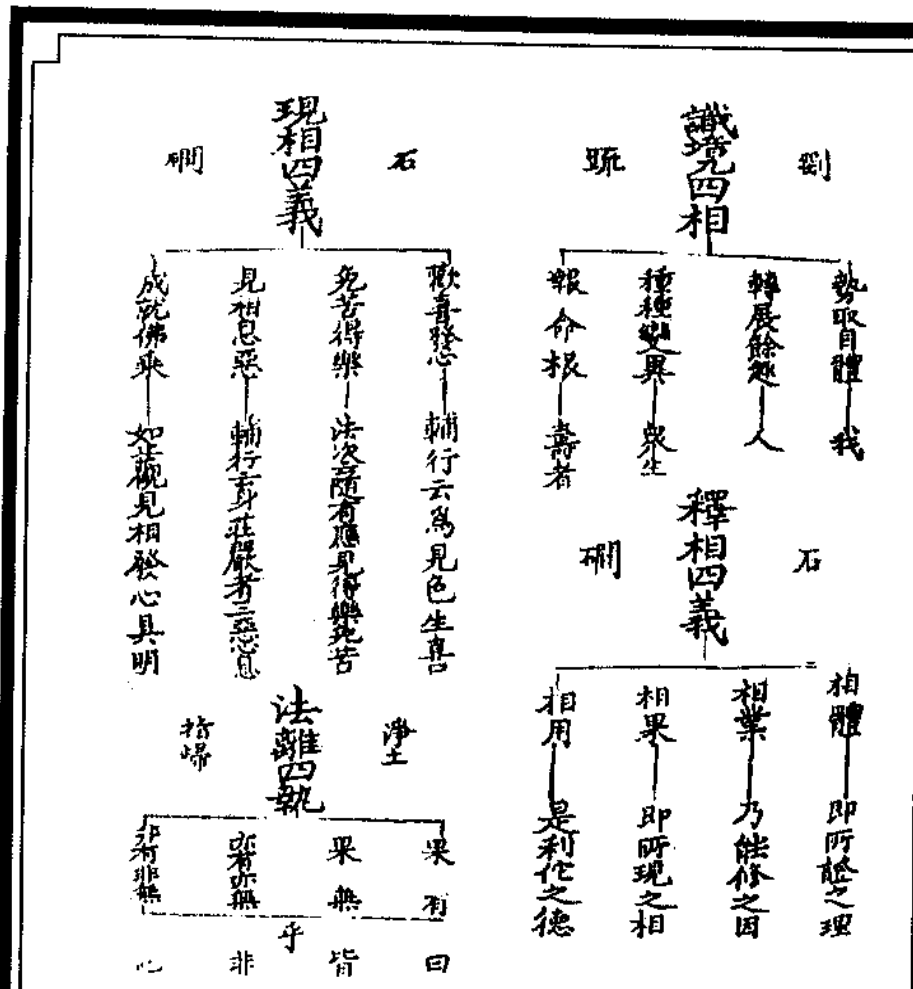 識境四相
劉
疏
執取自體
我
轉展餘趣
人
種種變異
衆生
報命根
壽者
釋相四義
石
磵
相體
即所證之理
相業
乃能修之因
相果
即所現之相
相用
是利佗之德
現相四義
石
磵
歡喜發心
輔行云爲見色生喜
免苦得樂
法次隨有應見得樂免苦
見相息惡
成就佛乘
如藏觀見相發心具明
法離四執
淨土
指歸
果有
果無
亦有亦無
非有非無
曰
皆
乎
非